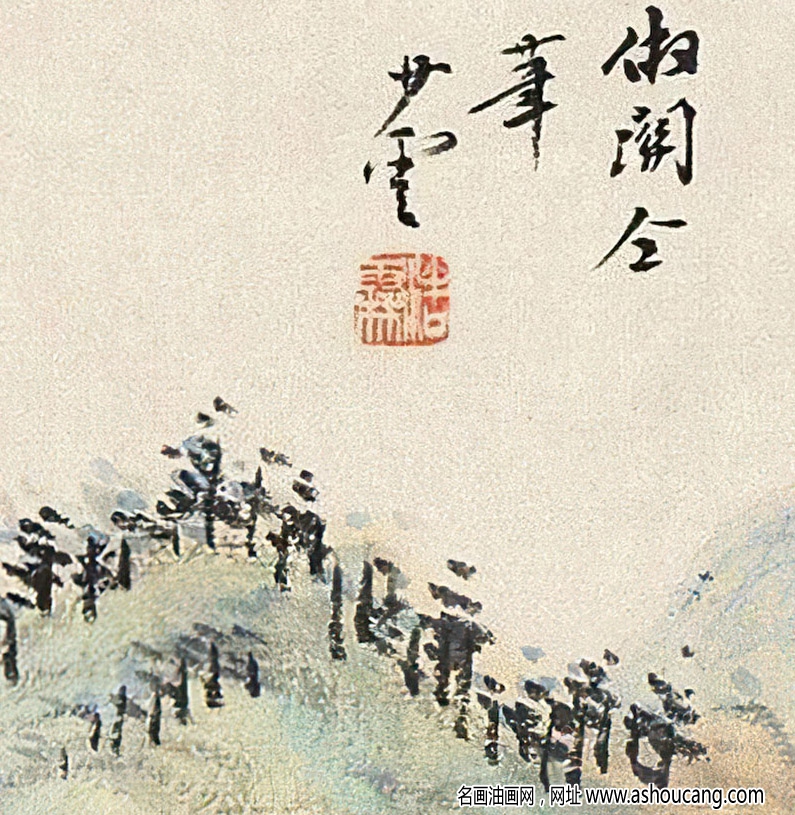 倣關仝
筆
雲
名画油画网，网址 www.ashoucang.com